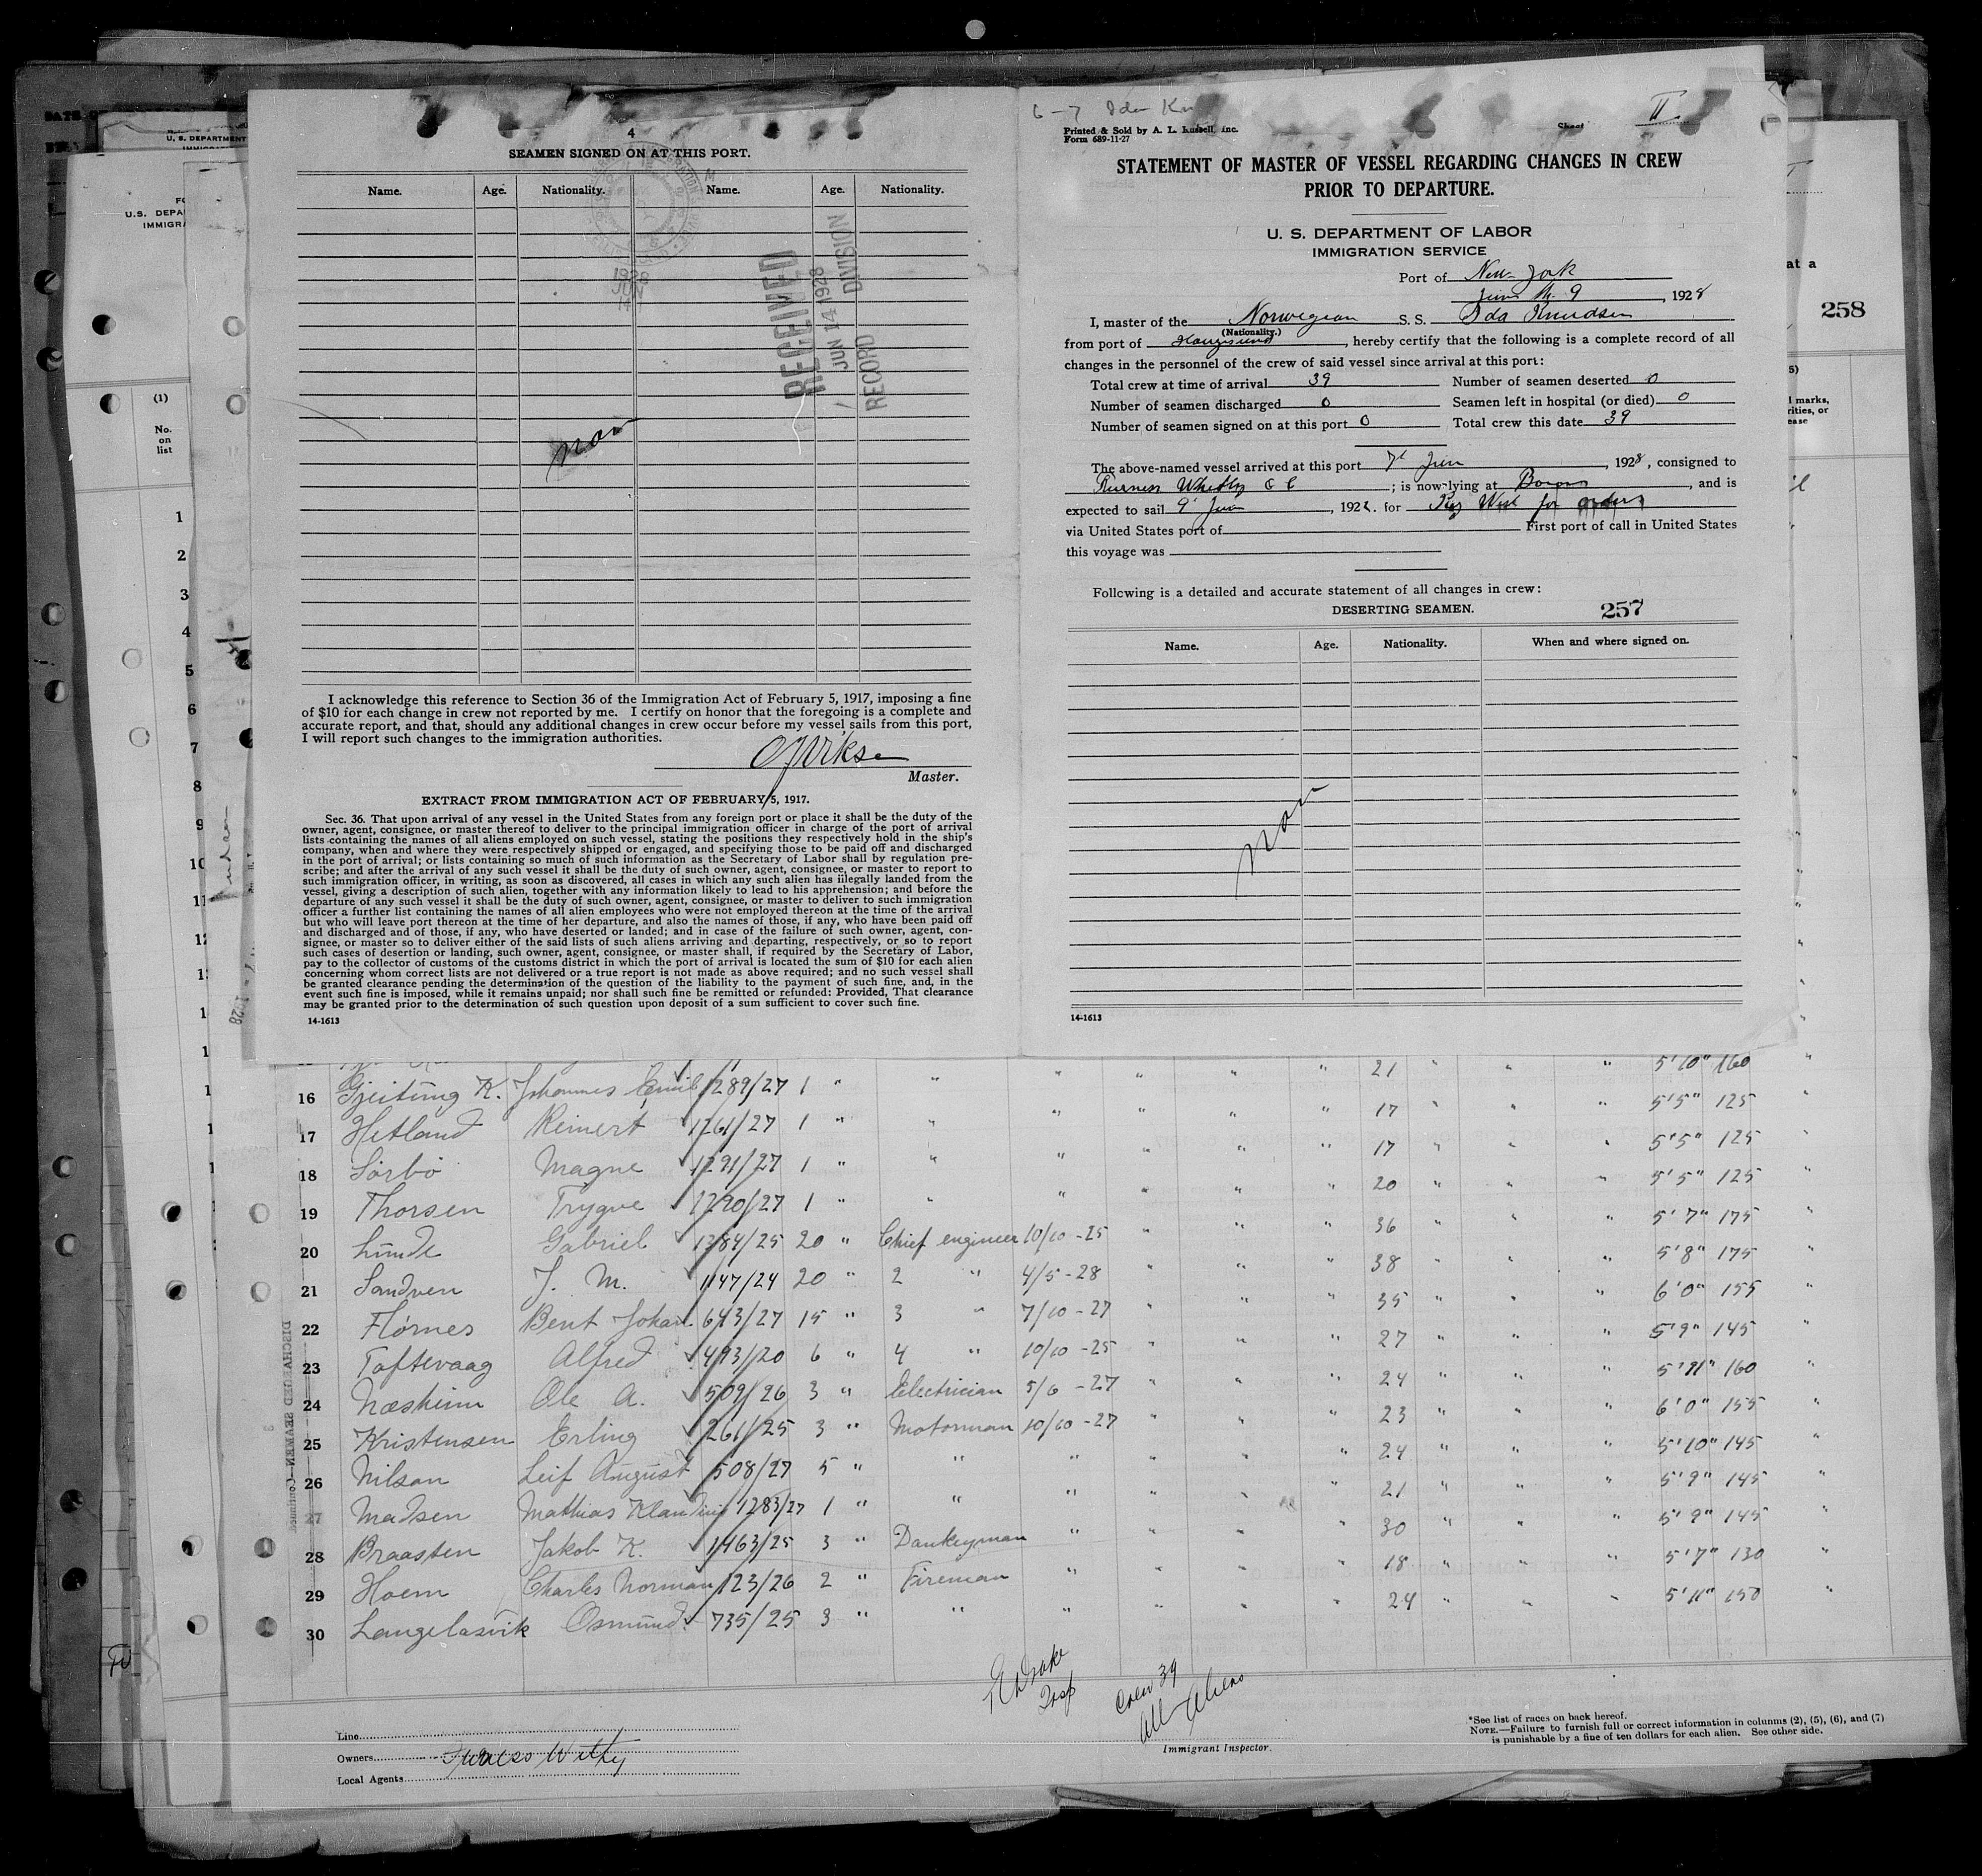 4
SEAMEN SIGNED ON AT THIS PORT.
Name. Age. Nationality. Name. Age. Nationality.
1928
JUN
14
RECEIVED
JUN 14 1928
RECORD DIVISION
I acknowledge this reference to Section 36 of the Immigration Act of February 5, 1917, imposing a fine
of $10 for each change in crew not reported by me. I certify on honor that the foregoing is a complete and
accurate report, and that, should any additional changes in crew occur before my vessel sails from this port,
I will report such changes to the immigration authorities.
Master.
EXTRACT FROM IMMIGRATION ACT OF FEBRUARY 5, 1917.
Sec. 36. That upon arrival of any vessel in the United States from any foreign port or place it shall be the duty of the
owner, agent, consignee, or master thereof to deliver to the principal immigration officer in charge of the port of arrival
lists containing the names of all aliens employed on such vessel, stating the positions they respectively hold in the ship's
company, when and where they were respectively shipped or engaged, and specifying those to be paid off and discharged
in the port of arrival; or lists containing so much of such information as the Secretary of Labor shall by regulation pre-
scribe; and after the arrival of any such vessel it shall be the duty of such owner, agent, consignee, or master to report to
such immigration officer, in writing, as soon as discovered, all cases in which any such alien has illegally landed from the
vessel, giving a description of such alien, together with any information likely to lead to his apprehension; and before the
departure of any such vessel it shall be the duty of such owner, agent, consignee, or master to deliver to such immigration
officer a further list containing the names of all alien employees who were not employed thereon at the time of the arrival
but who will leave port thereon at the time of her departure, and also the names of those, if any, who have been paid off
and discharged and of those, if any, who have deserted or landed; and in case of the failure of such owner, agent, con-
signee, or master so to deliver either of the said lists of such aliens arriving and departing, respectively, or so to report
such cases of desertion or landing, such owner, agent, consignee, or master shall, if required by the Secretary of Labor,
pay to the collector of customs of the customs district in which the port of arrival is located the sum of $10 for each alien
concerning whom correct lists are not delivered or a true report is not made as above required; and no such vessel shall
be granted clearance pending the determination of the question of the liability to the payment of such fine, and, in the
event such fine is imposed, while it remains unpaid; nor shall such fine be remitted or refunded: Provided, That clearance
may be granted prior to the determination of such question upon deposit of a sum sufficient to cover such fine.
14-1613
6-7 Ida Kn
Printed & Sold by A. L. Russell, Inc.
Form 689-11-27
Sheet II
STATEMENT OF MASTER OF VESSEL REGARDING CHANGES IN CREW
PRIOR TO DEPARTURE.
U. S. DEPARTMENT OF LABOR
IMMIGRATION SERVICE
Port of New-York
June 9, 1928
I, master of the Norwegian S. S. Ida Knudsen
(Nationality.)
from port of Haugesund, hereby certify that the following is a complete record of all
changes in the personnel of the crew of said vessel since arrival at this port:
Total crew at time of arrival 39 Number of seamen deserted 0
Number of seamen discharged 0 Seamen left in hospital (or died) 0
Number of seamen signed on at this port 0 Total crew this date 39
The above-named vessel arrived at this port 7 , 1928, consigned to
Furness Whitby ; is now lying at , and is
expected to sail 9 , 192 . for Key West for orders
via United States port of First port of call in United States
this voyage was
Following is a detailed and accurate statement of all changes in crew:
DESERTING SEAMEN. 257
Name. Age. Nationality. When and where signed on.
14-1613
258
U. S. DEPARTMENT
U.S. DEPA
IMMIGRA
(1)
No.
on
list
1
2
3
4
5
6
7
8
9
10
11
21 " " " 5'10" 160 "
16 Gjeitung K. Johannes Emil 1289/27 1 " " " " " " 17 " " " 5'5" 125 "
17 Hetland Reinert 1261/27 1 " " " " " " 17 " " " 5'5" 125 "
18 Sörbö Magne 1291/27 1 " " " " " " 20 " " " 5'5" 125 "
19 Thorsen Trygve 1290/27 1 " " " " " " 36 " " " 5'7" 175 "
20 Lunde Gabriel 1384/25 20 " Chief engineer 10/10-25 " " " 38 " " " 5'8" 175 "
21 Sandven J. M. 1147/24 20 " 2 " 4/5-28 " " " 35 " " " 6'0" 155 "
22 Flörnes Bent Johan 643/27 15 " 3 " 7/10-27 " " " 27 " " " 5'9" 145 "
23 Toftevaag Alfred 493/20 6 " 4 " 10/10-25 " " " 24 " " " 5'11" 160 "
24 Næsheim Ole A. 509/26 3 " Electrician 5/6-27 " " " 23 " " " 6'0" 155 "
25 Kristensen Erling 261/25 3 " Motorman 10/10-27 " " " 24 " " " 5'10" 145 "
26 Nilsen Leif August 508/27 5 " " " " " " 21 " " " 5'9" 145 "
27 Madsen Mathias Klaudius 1283/27 1 " " " " " " 30 " " " 5'9" 145 "
28 Braasten Jakob K. 1463/25 3 " Dankeyman " " " " 18 " " " 5'7" 130 "
29 Hoem Charles Norman 123/26 2 " Fireman " " " " 24 " " " 5'11" 150 "
30 Langelasvik Osmund 735/25 3 " " " " " "
DISCHARGED SEAMEN—Continued
Insp
Crew 39
All Aliens
Immigrant Inspector.
Line
Owners Furness Withy
Local Agents
*See list of races on back hereof.
NOTE.—Failure to furnish full or correct information in columns (2), (5), (6), and (7)
is punishable by a fine of ten dollars for each alien. See other side.